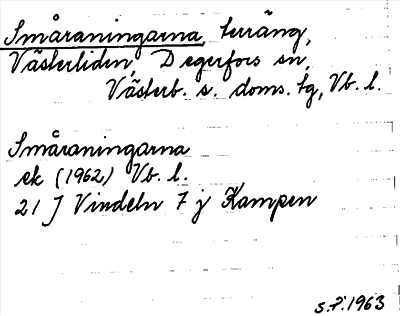 Småraningarna, terräng,
Västerliden, Degerfors sn,
Västerb. s. doms. tg, Vb. l.
Småraningarna
ek (1962) Vb. l.
21 J Vindeln 7 j Kampen
1963